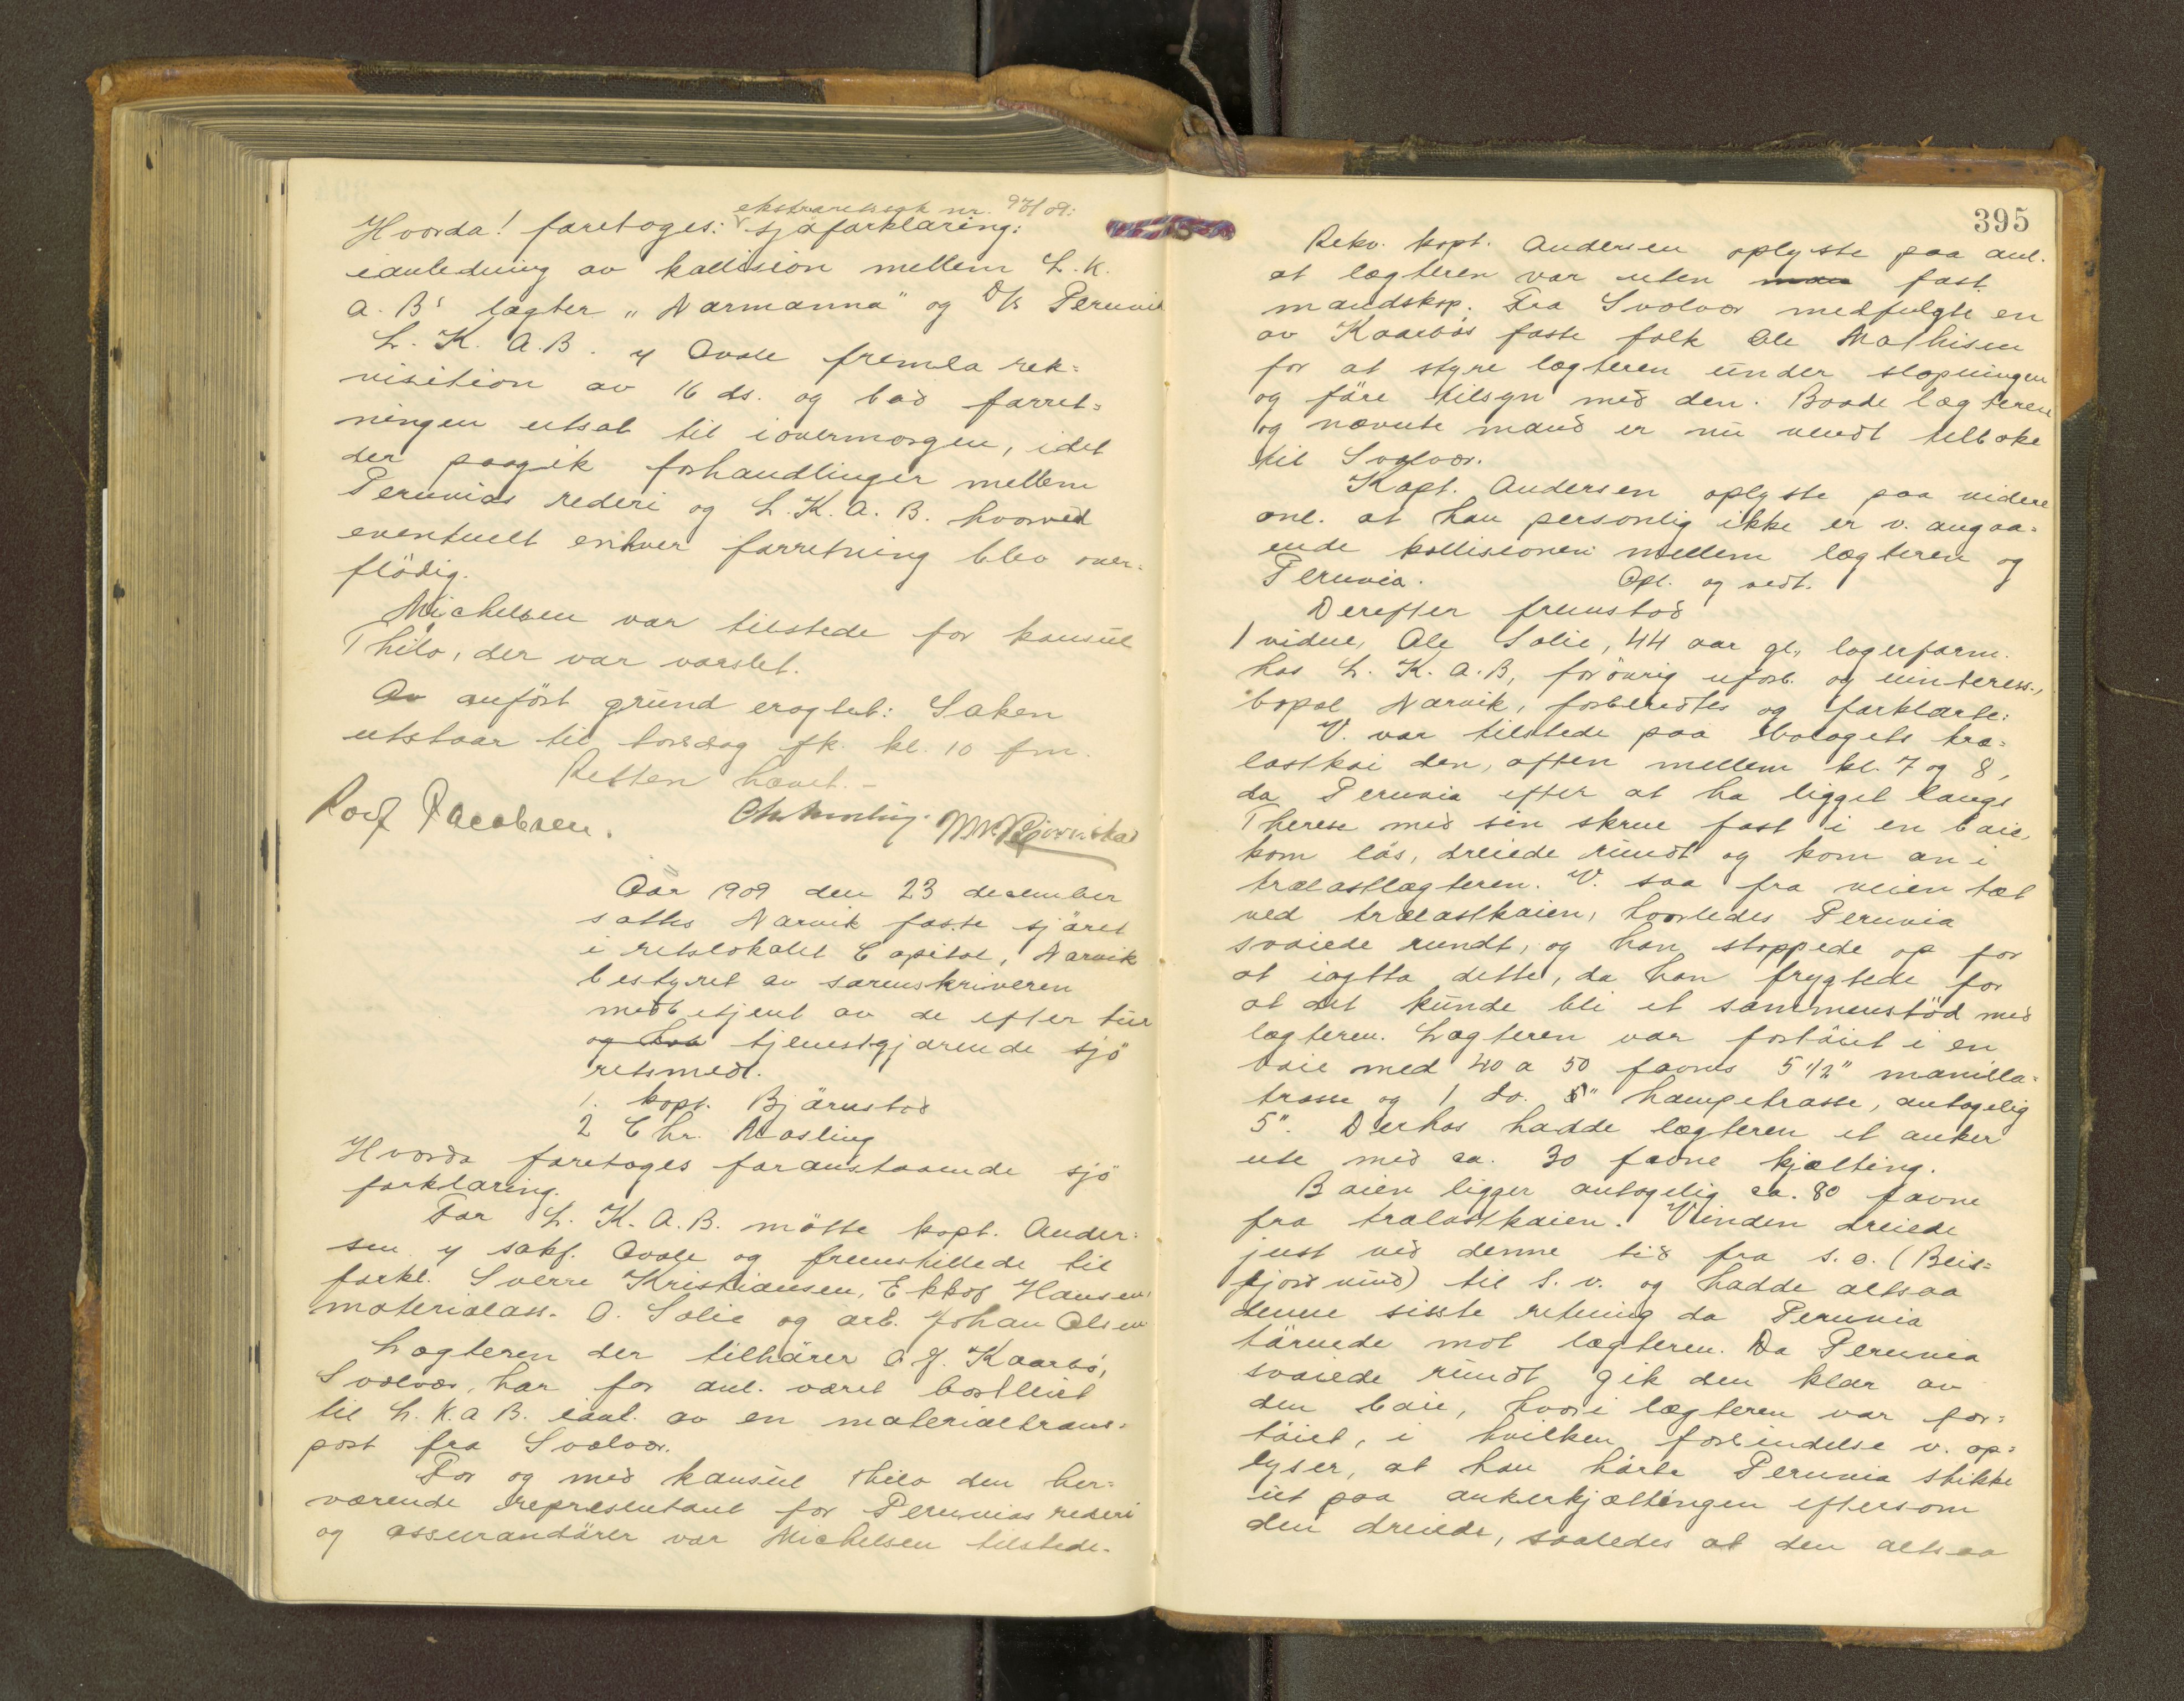 ekstraretssak nr. 97/09:
Hvorda! foretoges: sjøforklaring:
ianledning av kollision mellem L. K.
A. B's lægter "Normanna" og D/S Peruvia
L. K. A. B. v/ Qvale fremla rek=
visition av 16 ds. og bad forret=
ningen utsat til iovermorgen, idet
der paagik forhandlinger mellem
Peruvias rederi og L. K. A. B. hvorved
eventuelt enhver forretning blev over=
flödig.
Michelsen var tilstede for konsul
Thilo, der var varslet.
Av anfört grund eragtet: Saken
utstaar til torsdag fk. kl. 10 fm.
Retten hævet. -
Rolf Jacobsen. Chr Mosling. Bjørnstad
Aar 1909 den 23 december
sattes Narvik faste sjöret
i retslokalet Capitol, Narvik
bestyret av sorenskriveren
medbetjent av de efter tur
og tjenestgjörende sjö
retsmedl.
1. kapt. Björnstad
2 Chr. Mosling
Hvorda foretoges foranstaaende sjö
forklaring.
For L. K. A. B. mötte kapt. Ander=
sen v/ sakf. Qvale og fremstillede til
forkl. Sverre Kristiansen, Ekkof Hansen,
materialass. O. Solie og arb. Johan Olsen
Lægteren der tilhörer O. J. Kaarbö,
Svolvær, har for anl. været bortleiet
til L. K. A B. ianl. av en materialtrans=
port fra Svolvær.
For og med konsul Thilo den her=
værende representant for Peruvias rederi
og assurandörer var Michelsen tilstede.
395
Rekv. kapt. Andersen oplyste paa anl.
at lægteren var uten man fast
mandskap. Fra Svolvær medfulgte en
av Kaarbös faste folk Ole Mathisen
for at styre lægteren under slæpningen
og före tilsyn med den. Baade lægteren
og nævnte mand er nu vendt tilbake
til Svolvær.
Kapt. Andersen oplyste paa videre
anl. at han personlig ikke er v. angaa=
ende kollisionen mellem lægteren og
Peruvia. Opl. og vedt.
Derefter fremstod
1 vidne, Ole Solie, 44 aar gl., lagerform.
hos L. K. A. B, forövrig uforb. og uinteress.,
bopæl Narvik, forberedtes og forklarte:
V. var tilstede paa bolagets træ=
lastkai den, aften mellem kl. 7 og 8,
da Peruvia efter at ha ligget langs
Therese med sin skrue fast i en baie,
kom lös, dreiede rundt og kom an i
trælastlægteren. V. saa fra veien tæt
ved trælastkaien, hvorledes Peruvia
svaiede rundt, og han stoppede op for
at iagtta dette, da han frygtede for
at det kunde bli et sammenstöd med
lægteren. Lægteren var fortöiet i en
baie med 40 a 50 favnes 5 1/2" manilla=
trosse og 1 do. 5" hampetrosse, antagelig
5". Derhos hadde lægteren et anker
ute med ca. 30 favne kjætting.
Baien ligger antagelig ca. 80 favne
fra trælastkaien. Vinden dreiede
just ved denne tid fra s. o. (Beis=
fjord vind) til s. v. og hadde altsaa
denne sisste retning da Peruvia
törnede mot lægteren. Da Peruvia
svaiede rundt gik den klar av
den baie, hvori lægteren var for=
töiet, i hvilken forbindelse v. op=
lyser, at han hörte Peruvia stikke
ut paa ankerkjættingen eftersom
den dreiede, saaledes at den altsaa